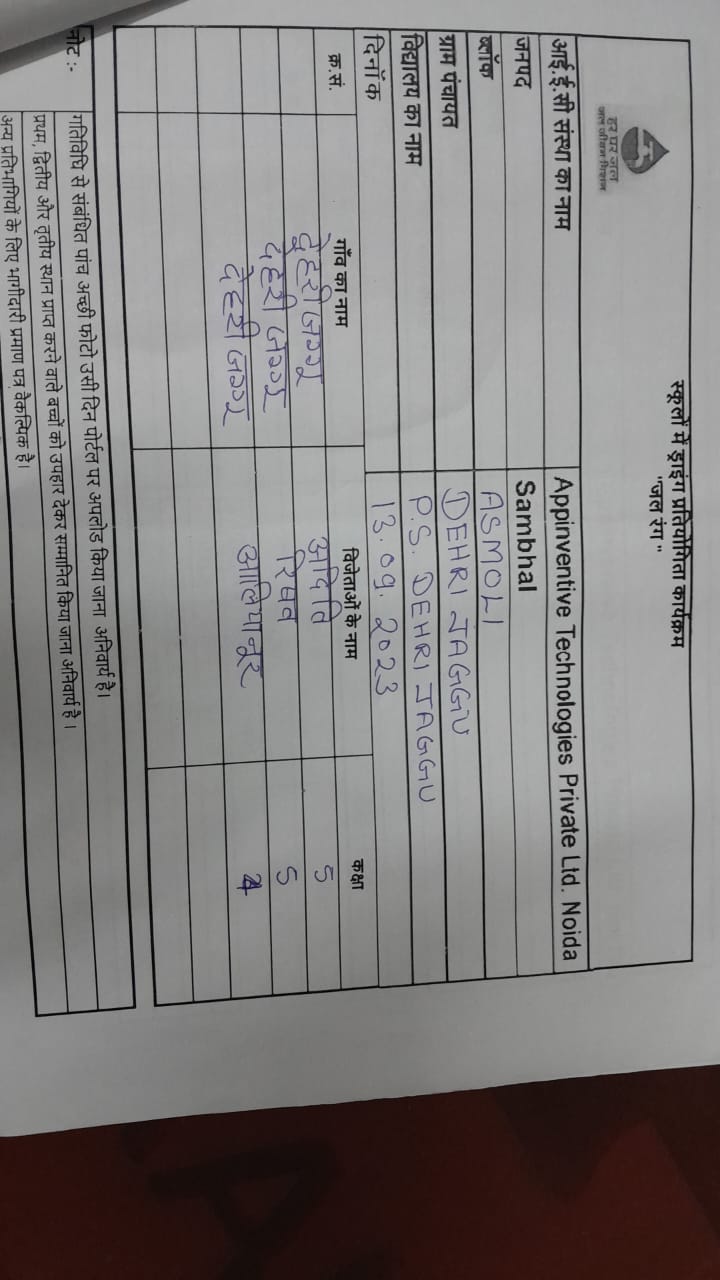 हर घर जल
जल जीवन मिशन
स्कूलों में ड्राइंग प्रतियोगिता कार्यक्रम
"जल रंग"
आई.ई.सी संस्था का नाम Appinventive Technologies Private Ltd. Noida
जनपद Sambhal
ब्लॉक ASMOLI
ग्राम पंचायत DEHRI JAGGU
विद्यालय का नाम P.S. DEHRI JAGGU
दिनाँक 13.09.2023
क्र.सं. गाँव का नाम विजेताओं के नाम कक्षा
देहरी जग्गू अदिति 5
देहरी जग्गू रिषव 5
देहरी जग्गू आलिया नूर 4
नोट :-
गतिविधि से संबंधित पांच अच्छी फोटो उसी दिन पोर्टल पर अपलोड किया जाना अनिवार्य है।
प्रथम, द्वितीय और तृतीय स्थान प्राप्त करने वाले बच्चों को उपहार देकर सम्मानित किया जाना अनिवार्य है ।
अन्य प्रतिभागियों के लिए भागीदारी प्रमाण पत्र वैकल्पिक है।